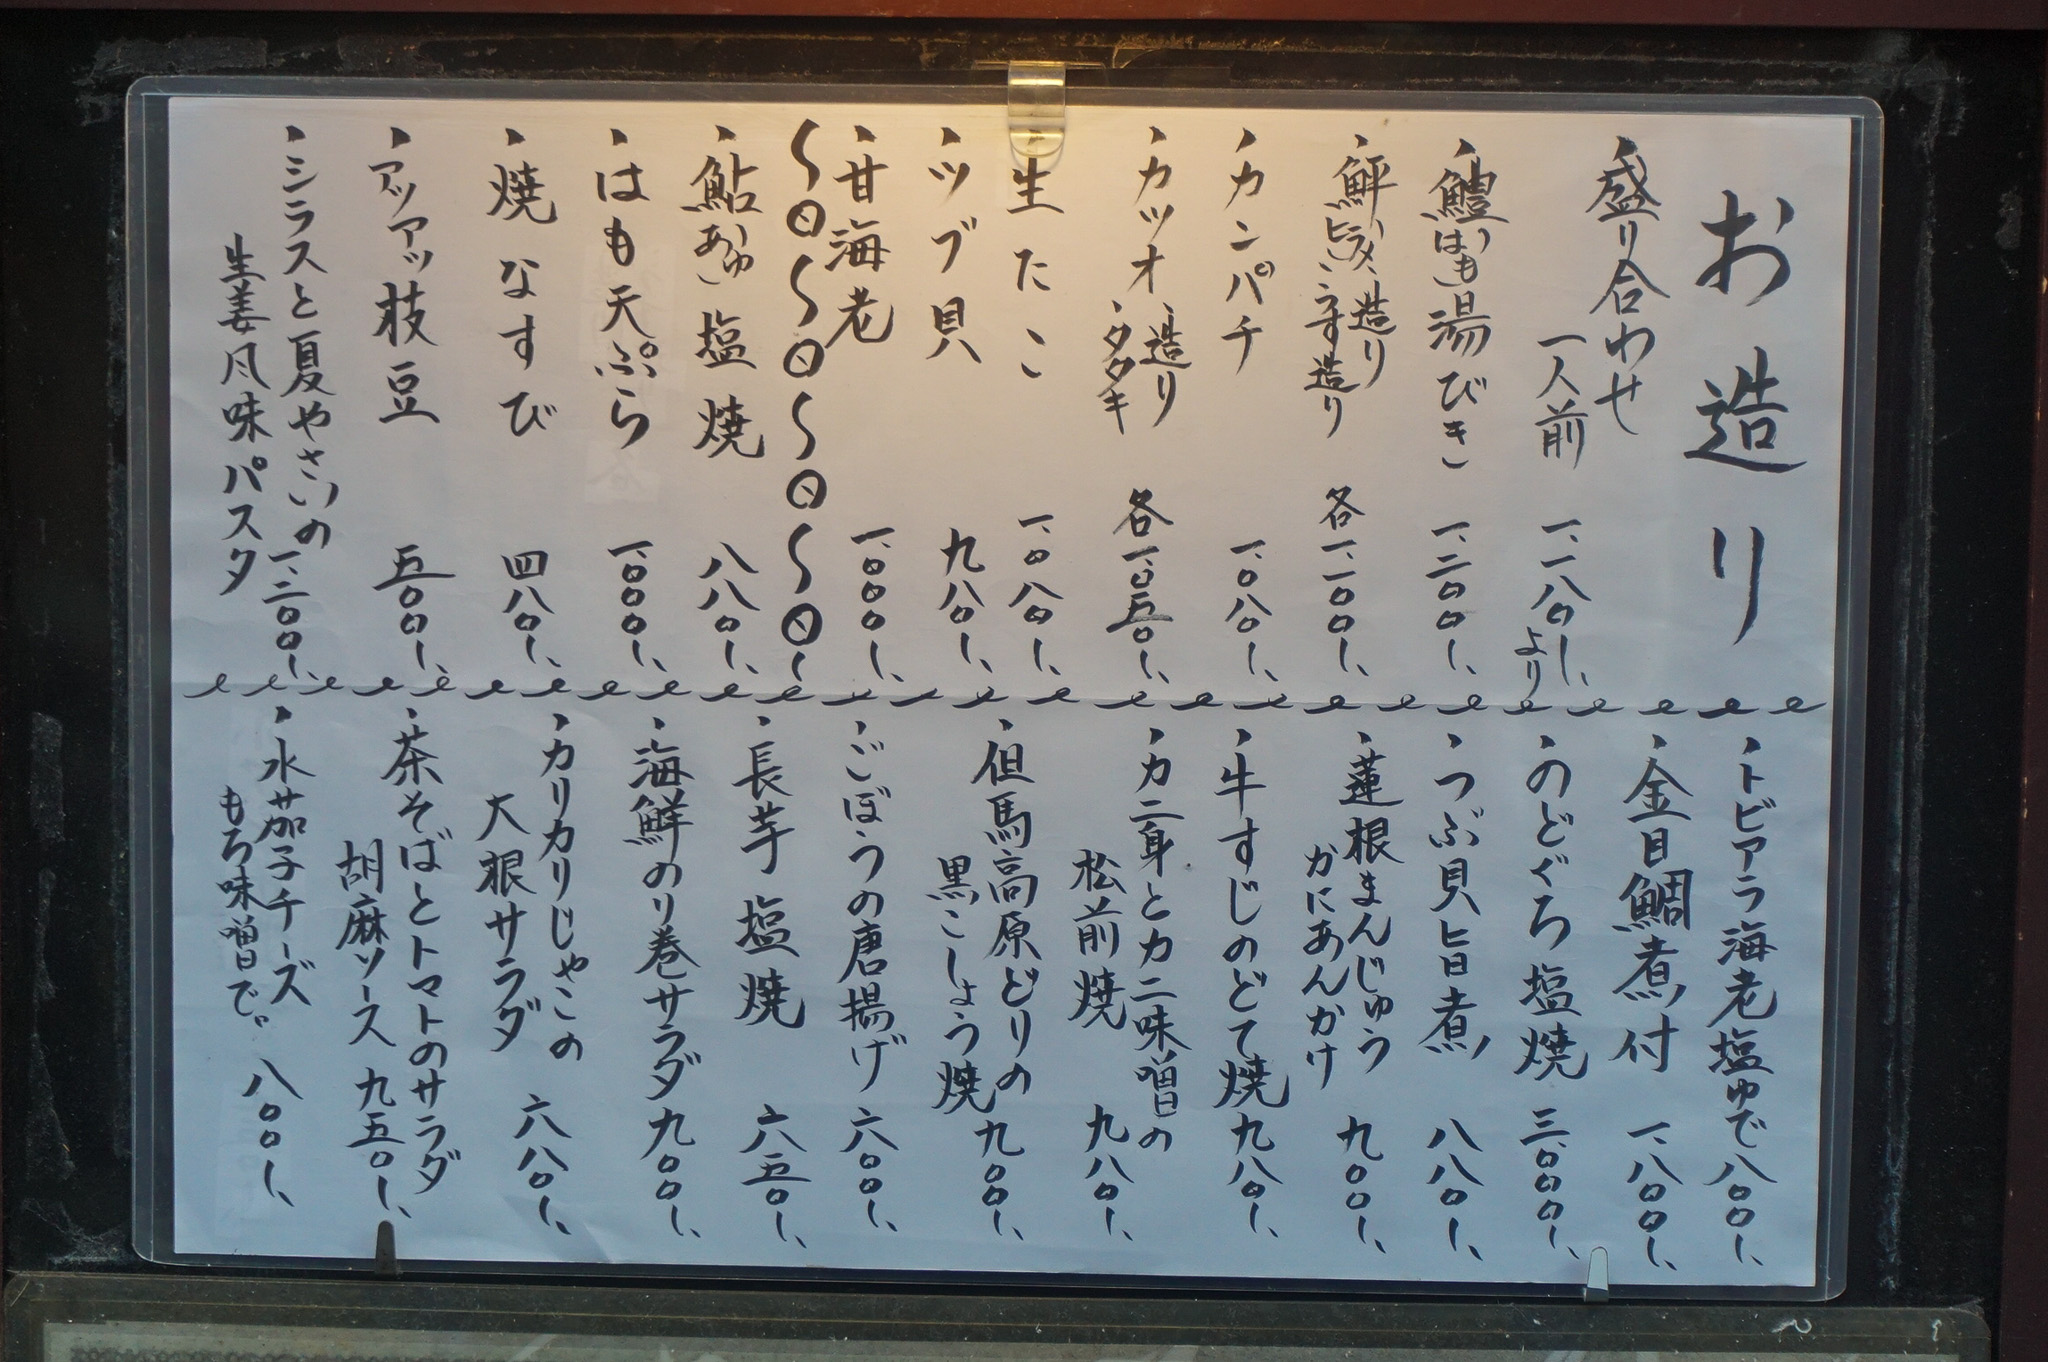 お造り
・盛り合わせ
一人前 一、一八〇〇より
・鱧(はも)湯びき 一、二〇〇〇
・鮃(ヒラメ)・造り
・うす造り 各一、一〇〇〇
・カンパチ 一、〇八〇〇
・カツオ・造り
・タタキ 各一、〇五〇〇
・生たこ 一、〇八〇〇
・ツブ貝 九八〇〇
・甘海老 一、〇〇〇〇
・鮎(あゆ)塩焼 八八〇〇
・はも天ぷら 一、〇〇〇〇
・焼なすび 四八〇〇
・アツアツ枝豆 五〇〇〇
・シラスと夏やさいの
生姜風味パスタ 一、二〇〇〇
・トビアラ海老塩ゆで 八〇〇〇
・金目鯛煮付 一、八〇〇〇
・のどぐろ塩焼 三、〇〇〇〇
・つぶ貝旨煮 八八〇〇
・蓮根まんじゅう
かにあんかけ 九〇〇〇
・牛すじのどて焼 九八〇〇
・カニ身とカニ味噌の
松前焼 九八〇〇
・但馬高原どりの
黒こしょう焼 九〇〇〇
・ごぼうの唐揚げ 六〇〇〇
・長芋塩焼 六五〇〇
・海鮮のり巻サラダ 九〇〇〇
・カリカリじゃこの
大根サラダ 六八〇〇
・茶そばとトマトのサラダ
胡麻ソース 九五〇〇
・水茄子チーズ
もろ味噌で。 八〇〇〇